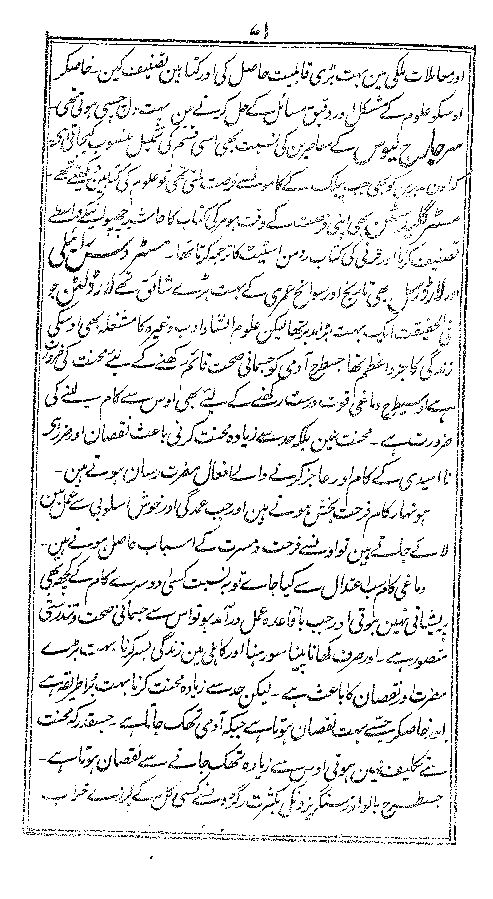 ۷۱
اور معاملات ملکی مین بہت بڑی قابلیت حاصل کی اور کتابین تصنیف کین۔ خاصکر
اوسکو علوم کے مشکل اور دقیق مسائل کے حل کرنے مین بہت دلچسپی ہوتی تھی۔
سر جارج لیوس کے معاصرین کی نسبت بھی اسی قسم کی تکمیل منسوب کیجاتی ہے
کو بھی جب پبلک کے کامونسے فرصت ملتی تھی تو علوم کی کتابین لکھتے تھے
مسٹر گلیڈسٹن بھی اپنی فرصت کے وقت ہومر کی کتاب کا حاشیہ چھپوانیکے واسطے
تصنیف کرتا اور کی کتاب رومن اسٹیٹ کا ترجمہ کرتا تھا۔ مسٹر ڈسرائیلی
اور لارڈ رسل بھی تاریخ اور سوانح عمری کے بہت بڑے شائق تھے لارڈ لٹن جو
فی الحقیقت ایک بہت بڑا مدبر تھا لیکن علوم انشا و ادب وغیرہ کا مشغلہ بھی اوسکی
زندگی کا جزو اعظم تھا جسطرح آدمی کو جسمانی صحت قائم رکھنے کے لئے محنت کی ضرورت
ہے اوسیطرح دماغی قوت درست رکھنے کے لئے بھی اوس سے کام لینے کی
ضرورت ہے۔ محنت نہین بلکہ حد سے زیادہ محنت کرنی باعث نقصان اور ضرر ہے
نا امیدی کے کام اور عاجز کرنے والے افعال مضرت رسان ہوتے ہین۔
ہونہار کام فرحت بخش ہوتے ہین اور جب عمدگی اور خوش اسلوبی سے عمل مین
لائے جاتے ہین تو اونسے فرحت و مسرت کے اسباب حاصل ہوتے ہین۔
دماغی کام بہ اعتدال سے کیا جاے تو بہ نسبت کسی دوسرے کام کے کچھ بھی
پریشانی نہین ہوتی اور جب باقاعدہ عمل درآمد ہو تو اس سے جسمانی صحت و تندرستی
متصور ہے۔ اور صرف کھانا پینا سو رہنا اور کاہلی مین زندگی بسر کرنا بہت بڑے
مضرت اور نقصان کا باعث ہے۔ لیکن حد سے زیادہ محنت کرنا بہت بُرا طریقہ ہے
اور خاصکر سے بہت نقصان ہوتا ہے جبکہ آدمی تھک جاتا ہے۔ جسقدر کہ محنت
سے تکلیف نہین ہوتی اوس سے زیادہ تھک جانے سے نقصان ہوتا ہے۔
جسطرح بالو اور سنگریزونکی بکثرت رگڑ ونسے کسی کل کے پرزے خراب